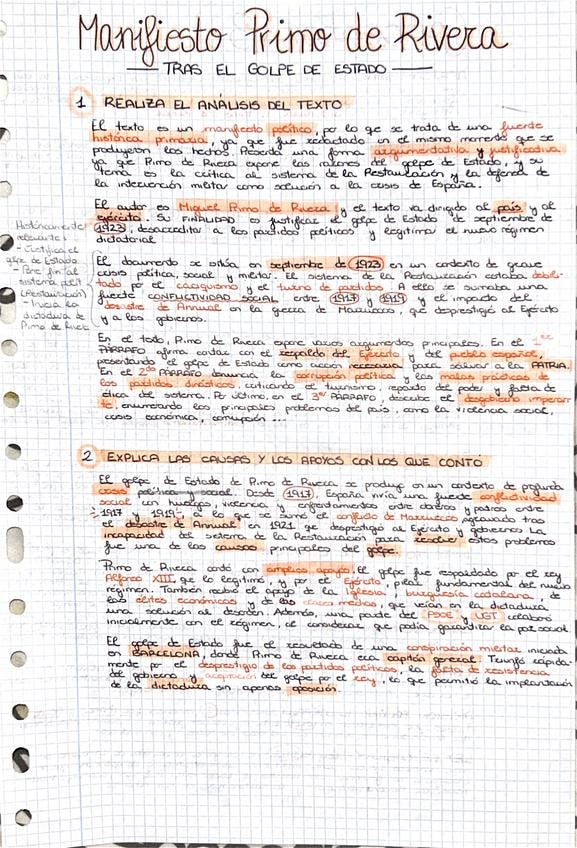 Manifiesto Primo de Rivera
— TRAS EL GOLPE DE ESTADO —
1 REALIZA EL ANÁLISIS DEL TEXTO
El texto es un manifiesto político, por lo que se trata de una fuente
histórica primaria, ya que fue redactado en el mismo momento que se
produjeron los hechos. Adopta una forma argumentativa y justificativa
ya que Primo de Rivera expone las razones del golpe de Estado, y su
tema es la crítica al sistema de la Restauración y la defensa de
la intervención militar como solución a la crisis de España.
El autor es Miguel Primo de Rivera y el texto va dirigido al país y al
ejército. Su FINALIDAD es justificar el golpe de Estado de septiembre de
1923, desacreditar a los partidos políticos y legitimar el nuevo régimen
dictatorial
Históricamente
relevante:
- Justifica el
golpe de Estado
- Pone fin al
sistema polít
(Restauración)
- Inicia la
dictadura de
Primo de Rivera
El documento se sitúa en septiembre de 1923 en un contexto de grave
crisis política, social y militar. El sistema de la Restauración estaba debili-
tado por el caciquismo y el turno de partidos. A ello se sumaba una
fuerte CONFLICTIVIDAD SOCIAL entre 1917 y 1919 y el impacto del
Desastre de Annual en la guerra de Marruecos, que desprestigió al Ejército
y a los gobiernos.
En el texto, Primo de Rivera expone varios argumentos principales. En el 1er
PÁRRAFO afirma contar con el respaldo del Ejército y del pueblo español,
presentando el golpe de Estado como acción necesaria para salvar a la PATRIA.
En el 2do PÁRRAFO denuncia la corrupción política y las malas prácticas de
los partidos dinásticos, criticando el turnismo, reparto del poder y falta de
ética del sistema. Por último, en el 3er PÁRRAFO, describe el desgobierno imperan-
te, enumerando los principales problemas del país, como la violencia social,
crisis económica, corrupción ...
2 EXPLICA LAS CAUSAS Y LOS APOYOS CON LOS QUE CONTÓ
El golpe de Estado de Primo de Rivera se produjo en un contexto de profunda
crisis política y social. Desde 1917, España vivía una fuerte conflictividad
social con huelgas, violencia y enfrentamientos entre obreros y patronos entre
1917 y 1919. A lo que se sumó el conflicto de Marruecos agravado tras
el desastre de Annual, en 1921 que desprestigió al Ejército y gobiernos. La
incapacidad del sistema de la Restauración para resolver estos problemas
fue una de las causas principales del golpe.
Primo de Rivera contó con amplios apoyos. El golpe fue respaldado por el rey
Alfonso XIII, que lo legitimó, y por el Ejército, pilar fundamental del nuevo
régimen. También recibió el apoyo de la Iglesia, burguesía catalana, de
las élites económicas y de las clases medias, que veían en la dictadura
una solución al desorden. Además, una parte del PSOE y UGT colaboró
inicialmente con el régimen, al considerar que podía garantizar la paz social
El golpe de Estado fue el resultado de una conspiración militar iniciada
en BARCELONA, donde Primo de Rivera era capitán general. Triunfó rápida-
mente por el desprestigio de los partidos políticos, la falta de resistencia
del gobierno y aceptación del golpe por el rey, lo que permitió la implantación
de la dictadura sin apenas oposición.